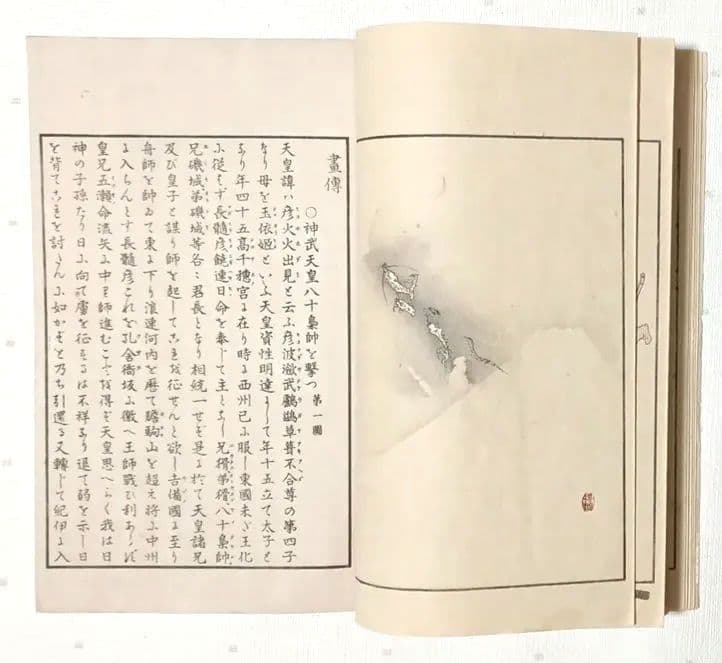 畫傳
○神武天皇八十梟帥を撃つ 第一圖
天皇諱ハ彦火火出見と云ふ彦波瀲武鸕鷀草葺不合尊の第四子
なり母を玉依姬といふ天皇資性明達にして年十五立て太子と
なり年四十五高千穗宮に在り時に西州已に服し東國未だ王化
に從はず長髓彦饒速日命を奉じて主となし兄猾弟猾八十梟帥
兄磯城弟磯城等各〻君長となり相統一せず是に於て天皇諸兄
及び皇子と謀り師を起してこれを征せんと欲し吉備國に至り
舟師を帥ゐて東に下り浪速河内を曆て膽駒山を超え將に中州
に入らんとす長髓彦これを孔舍衞坂に徼へ王師戰ひ利あらず
皇兄五瀨命流矢に中り師進むこと得ず天皇思へらく我は日
神の子孫なり日に向て虜を征するは不祥なり退て弱を示し日
を背てこれを討んに如かずと乃ち引還る又轉じて紀伊に入